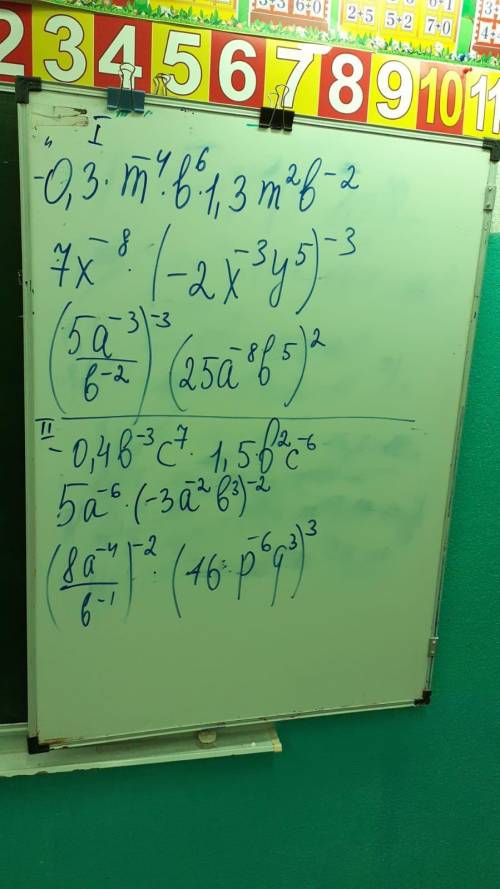 2 3 4 5 6 7 8 9 10 11
2+5 5+2 7+0
I
-0,3·m⁻⁴·b⁶·1,3m²b⁻²
7x⁻⁸·(-2x⁻³y⁵)⁻³
(5a⁻³/b⁻²)⁻³ (25a⁻⁸b⁵)²
II
-0,4b⁻³c⁷·1,5·b²c⁻⁶
5a⁻⁶·(-3a⁻²b³)⁻²
(8a⁻⁴/b⁻¹)⁻²·(16·p⁻⁶q³)³